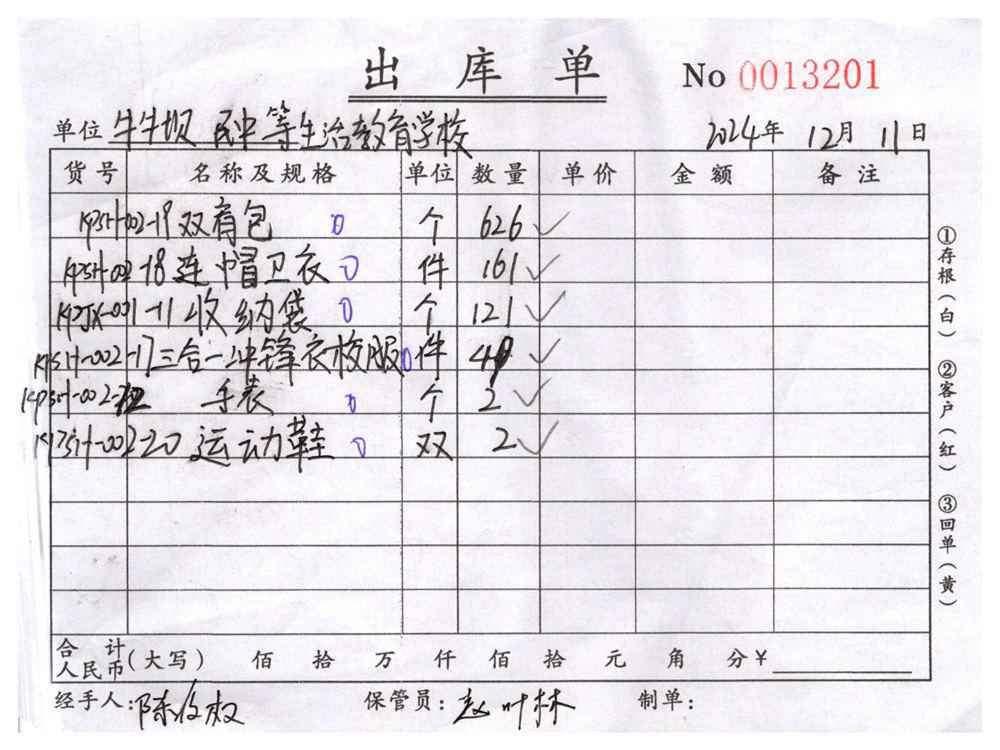 出库单
No 0013201
单位 牛牛坝 民中等生治教育学校 2024年 12月 11日
货号 名称及规格 单位 数量 单价 金额 备注
KPSH-002-19 双肩包 0 个 626 ✓
KPSH-002-18 连帽卫衣 0 件 161 ✓
KPJX-001-11 收纳袋 0 个 121 ✓
KPSH-002-17 三合一冲锋衣校服 0 件 49 ✓
KPSH-002- 手表 0 个 2 ✓
KPSH-002-20 运动鞋 0 双 2 ✓
合计
人民币(大写) 佰 拾 万 仟 佰 拾 元 角 分 ¥
经手人: 陈 权 保管员: 赵叶林 制单:
①存根(白) ②客户(红) ③回单(黄)